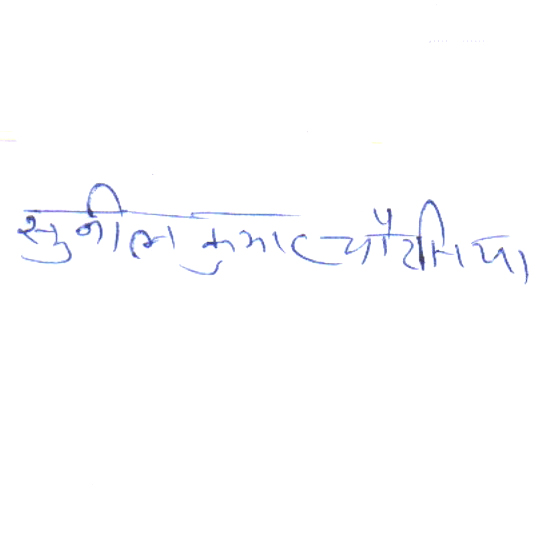 सुनील कुमार चौरसिया